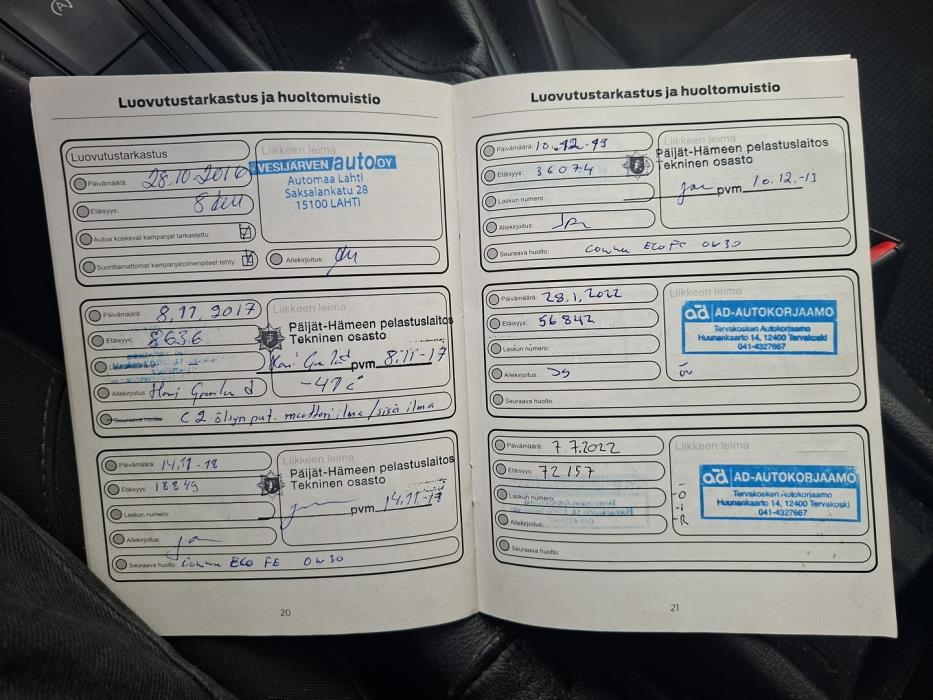 Luovutustarkastus ja huoltomuistio
Luovutustarkastus
Liikkeen leima
Päivämäärä: 28.10.2016
VESIJÄRVEN auto OY
Automaa Lahti
Saksalankatu 28
15100 LAHTI
Etäisyys: 8
Autoa koskevat kampanjat tarkastettu:
Suorittamattomat kampanjatoimenpiteet tehty:
Allekirjoitus:
Päivämäärä: 8.11.2017
Liikkeen leima
Etäisyys: 8636
Päijät-Hämeen pelastuslaitos
Tekninen osasto
pvm 8.11-17
Allekirjoitus:
Seuraava huolto: öljyn
Päivämäärä: 14.11-18
Liikkeen leima
Etäisyys: 18849
Päijät-Hämeen pelastuslaitos
Tekninen osasto
Laskun numero:
pvm 14.11-17
Allekirjoitus:
Seuraava huolto: ECO FE 0w30
20
Luovutustarkastus ja huoltomuistio
Päivämäärä: 10.12-19
Etäisyys: 36074
Päijät-Hämeen pelastuslaitos
Tekninen osasto
Laskun numero:
pvm 10.12.-19
Allekirjoitus:
Seuraava huolto: ECO FE 0w30
Päivämäärä: 28.1.2022
Liikkeen leima
Etäisyys: 56842
ad AD-AUTOKORJAAMO
Tervakosken Autokorjaamo
Huunankaarto 14, 12400 Tervakoski
041-4327667
Laskun numero:
Allekirjoitus:
Seuraava huolto:
Päivämäärä: 7.7.2022
Liikkeen leima
Etäisyys: 72157
ad AD-AUTOKORJAAMO
Tervakosken Autokorjaamo
Huunankaarto 14, 12400 Tervakoski
041-4327667
Laskun numero:
Allekirjoitus:
Seuraava huolto:
21